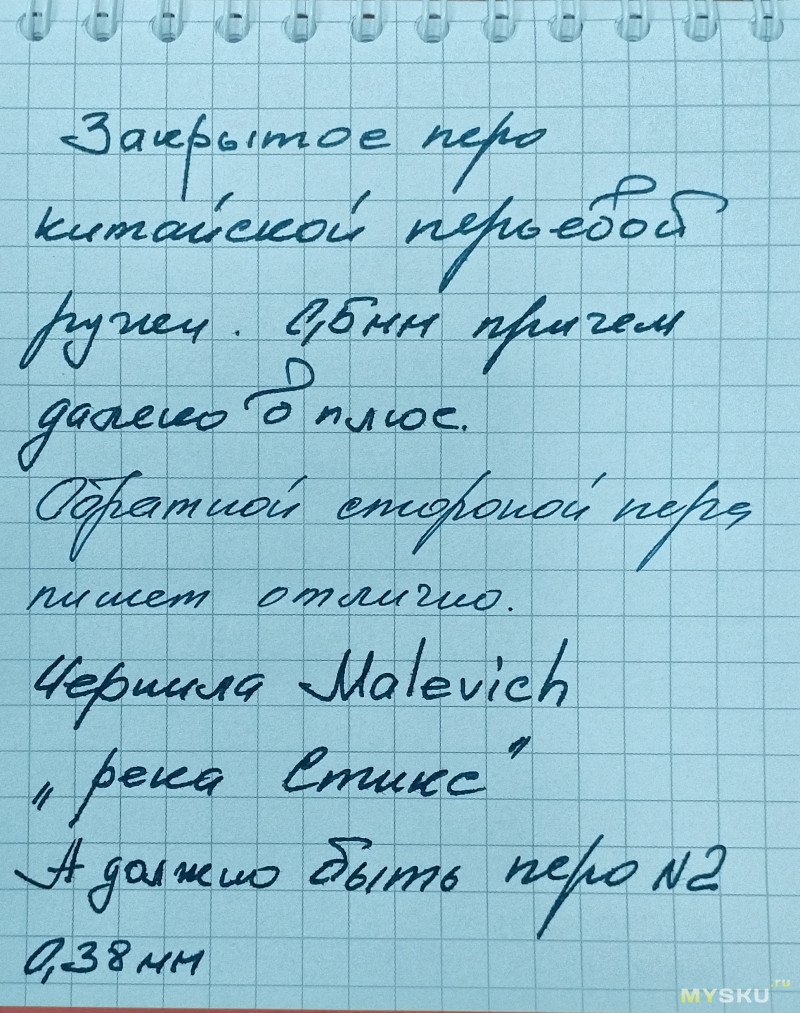 Закрытое перо
китайской перьевой
ручки. 0,5мм причем
далеко в плюс.
Обратной стороной пера
пишет отлично.
Чернила Malevich
„река Стикс"
А должно быть перо №2
0,38мм
MYSKU.ru